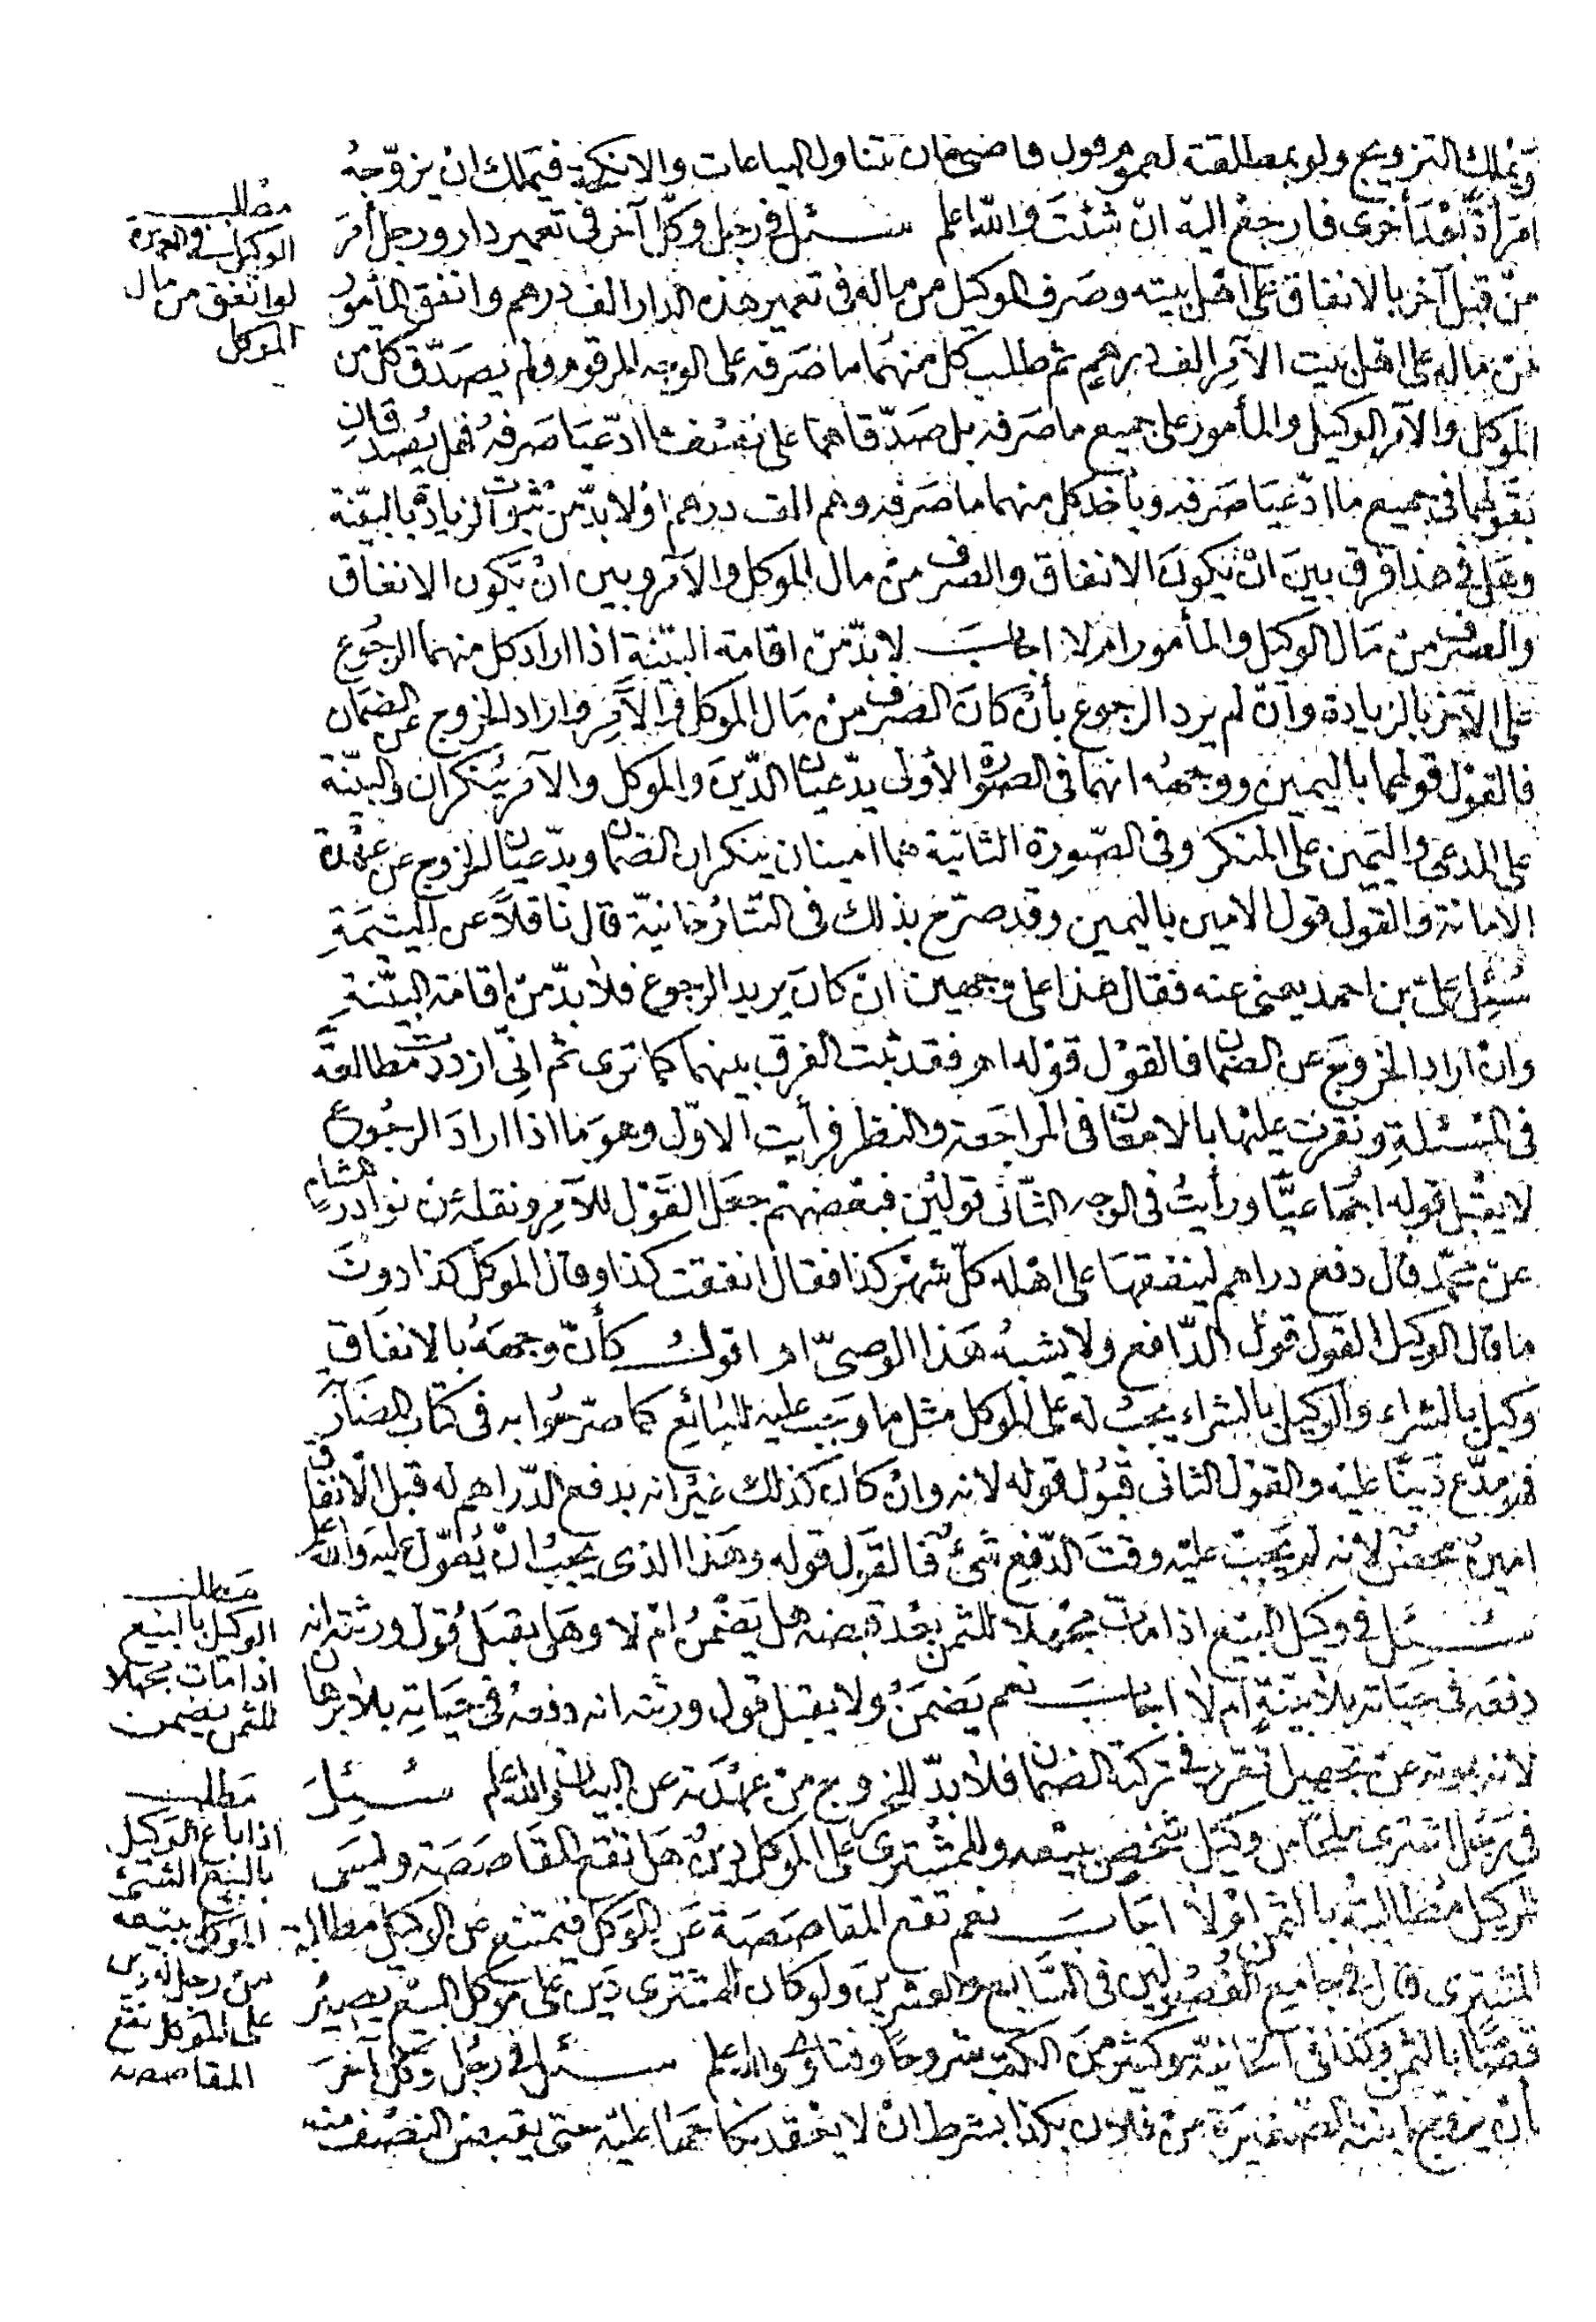 ويملك التزويج ولو بمطلقته لعموم قول قاضيخان تتناول البياعات والانكحة فيملك ان يزوّجه
امرأة بعد أخرى فارجع اليه ان شئت والله اعلم سئل في رجل وكّل آخر في تعمير دار ورجل أمر
من قبل آخر بالانفاق على اهل بيته وصرف الوكيل من ماله في تعمير هذه الدار الف درهم وانفق المأمور
من ماله على اهل بيت الآمر الف درهم ثم طلب كل منهما ما صرفه على الوجه المرقوم ولم يصدّق كل من
الموكل والآمر الوكيل والمأمور على جميع ما صرفه بل صدّقاهما على نصف ما ادّعيا صرفه فهل يصدقان
بقولهما في جميع ما ادّعيا صرفه ويأخذ كل منهما ما صرفه وهم الف درهم او لا بدّ من ثبوت الزيادة بالبيّنة
وهل في هذا فرق بين ان يكون الانفاق والصرف من مال الموكل والآمر وبين ان يكون الانفاق
والصرف من مال الوكيل والمأمور ام لا اجاب لا بدّ من اقامة البيّنة اذا اراد كل منهما الرجوع
على الآخر بالزيادة وان لم يرد الرجوع بأن كان الصرف من مال الموكل والآمر واراد الخروج عن الضمان
فالقول قولهما باليمين ووجهه انهما في الصورة الأولى يدّعيان الدّين والموكل والآمر ينكران والبيّنة
على المدعي واليمين على المنكر وفي الصورة الثانية هما امينان ينكران الضمان ويدّعيان الخروج عن عهدة
الامانة والقول قول الامين باليمين وقد صرّح بذلك في التتارخانيّة قال ناقلاً عن اليتيمة
سئل علي بن احمد يعني عنه فقال هذا على وجهين ان كان يريد الرجوع فلا بدّ من اقامة البيّنة
وان اراد الخروج عن الضمان فالقول قوله اهـ فقد ثبت الفرق بينهما كما ترى ثم اني ازددت مطالعة
في المسئلة ونقرت عليها بالامعان في المراجعة والنظر فرأيت الاوّل وهو ما اذا اراد الرجوع
لا يقبل قوله اجماعيًّا ورأيت في الوجه الثاني قولين فبعضهم جعل القول للآمر ونقله عن نوادر هشام
عن محمّد قال دفع دراهم لينفقها على اهله كلّ شهر كذا فقال انفقت كذا وقال الموكل كذا دون
ما قال الوكيل القول قول الدّافع ولا يشبه هذا الوصيّ اهـ اقول كأنّ وجهه بالانفاق
وكيل بالشراء والوكيل بالشراء يجب له على الموكل مثل ما وجب عليه للبائع كما صرّحوا به في كتاب المضاربة
فهو مدّع دينًا عليه والقول الثاني قبول قوله لانه وان كان كذلك غير انه بدفع الدّراهم له قبل الانفاق
امين محض لانه لم يجب عليه وقت الدّفع شيء فالقول قوله وهذا الذي يجب ان يعوّل عليه والله اعلم
سئل في وكيل البيع اذا مات مجهلاً للثمن بعد قبضه هل يضمن ام لا وهل يقبل قول ورثته انه
دفعه في حياته بلا بيّنة ام لا اجاب نعم يضمن ولا يقبل قول ورثته انه دفعه في حياته بلا برهان
لانه بموته عن تجهيل تقرر في تركته الضمان فلا بدّ للخروج من عهدته عن البيان والله اعلم سئل
في رجل اشترى ملحًا من وكيل شخص ببيعه وللمشتري على الموكل دين هل تقع المقاصصة وليس
للوكيل مطالبته بالثمن او لا اجاب نعم تقع المقاصصة عن الموكل فيمتنع عن الوكيل مطالبة
المشتري قال في جامع الفصولين في السابع والعشرين ولو كان للمشتري دين على موكل البيع يصير
قصاصًا بالثمن وكذا في الخانيّة وكثير من الكتب شروحًا وفتاوى والله اعلم سئل في رجل وكّل آخر
بأن يزوّج ابنته الصغيرة من فلان بكذا بشرط ان لا يعقد نكاحها عليه حتى يقبض النصف منه
مطلب
الوكيل في العمارة
لو انفق من مال
الموكل
مطلب
الوكيل بالبيع
اذا مات مجهلا
للثمن يضمن
مطلب
اذا باع الوكيل
بالبيع الشئ
الموكل ببيعه
من رجل له دين
على الموكل تقع
المقاصصه